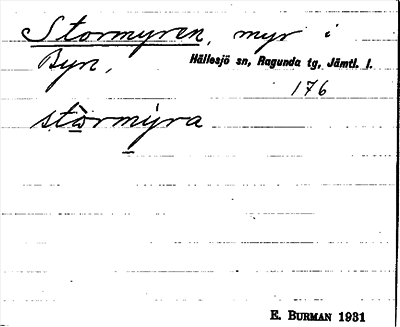 Stormyren, myr i
Byn, Hällesjö sn, Ragunda tg, Jämtl. l.
176
stòrmýra
E. BURMAN 1931